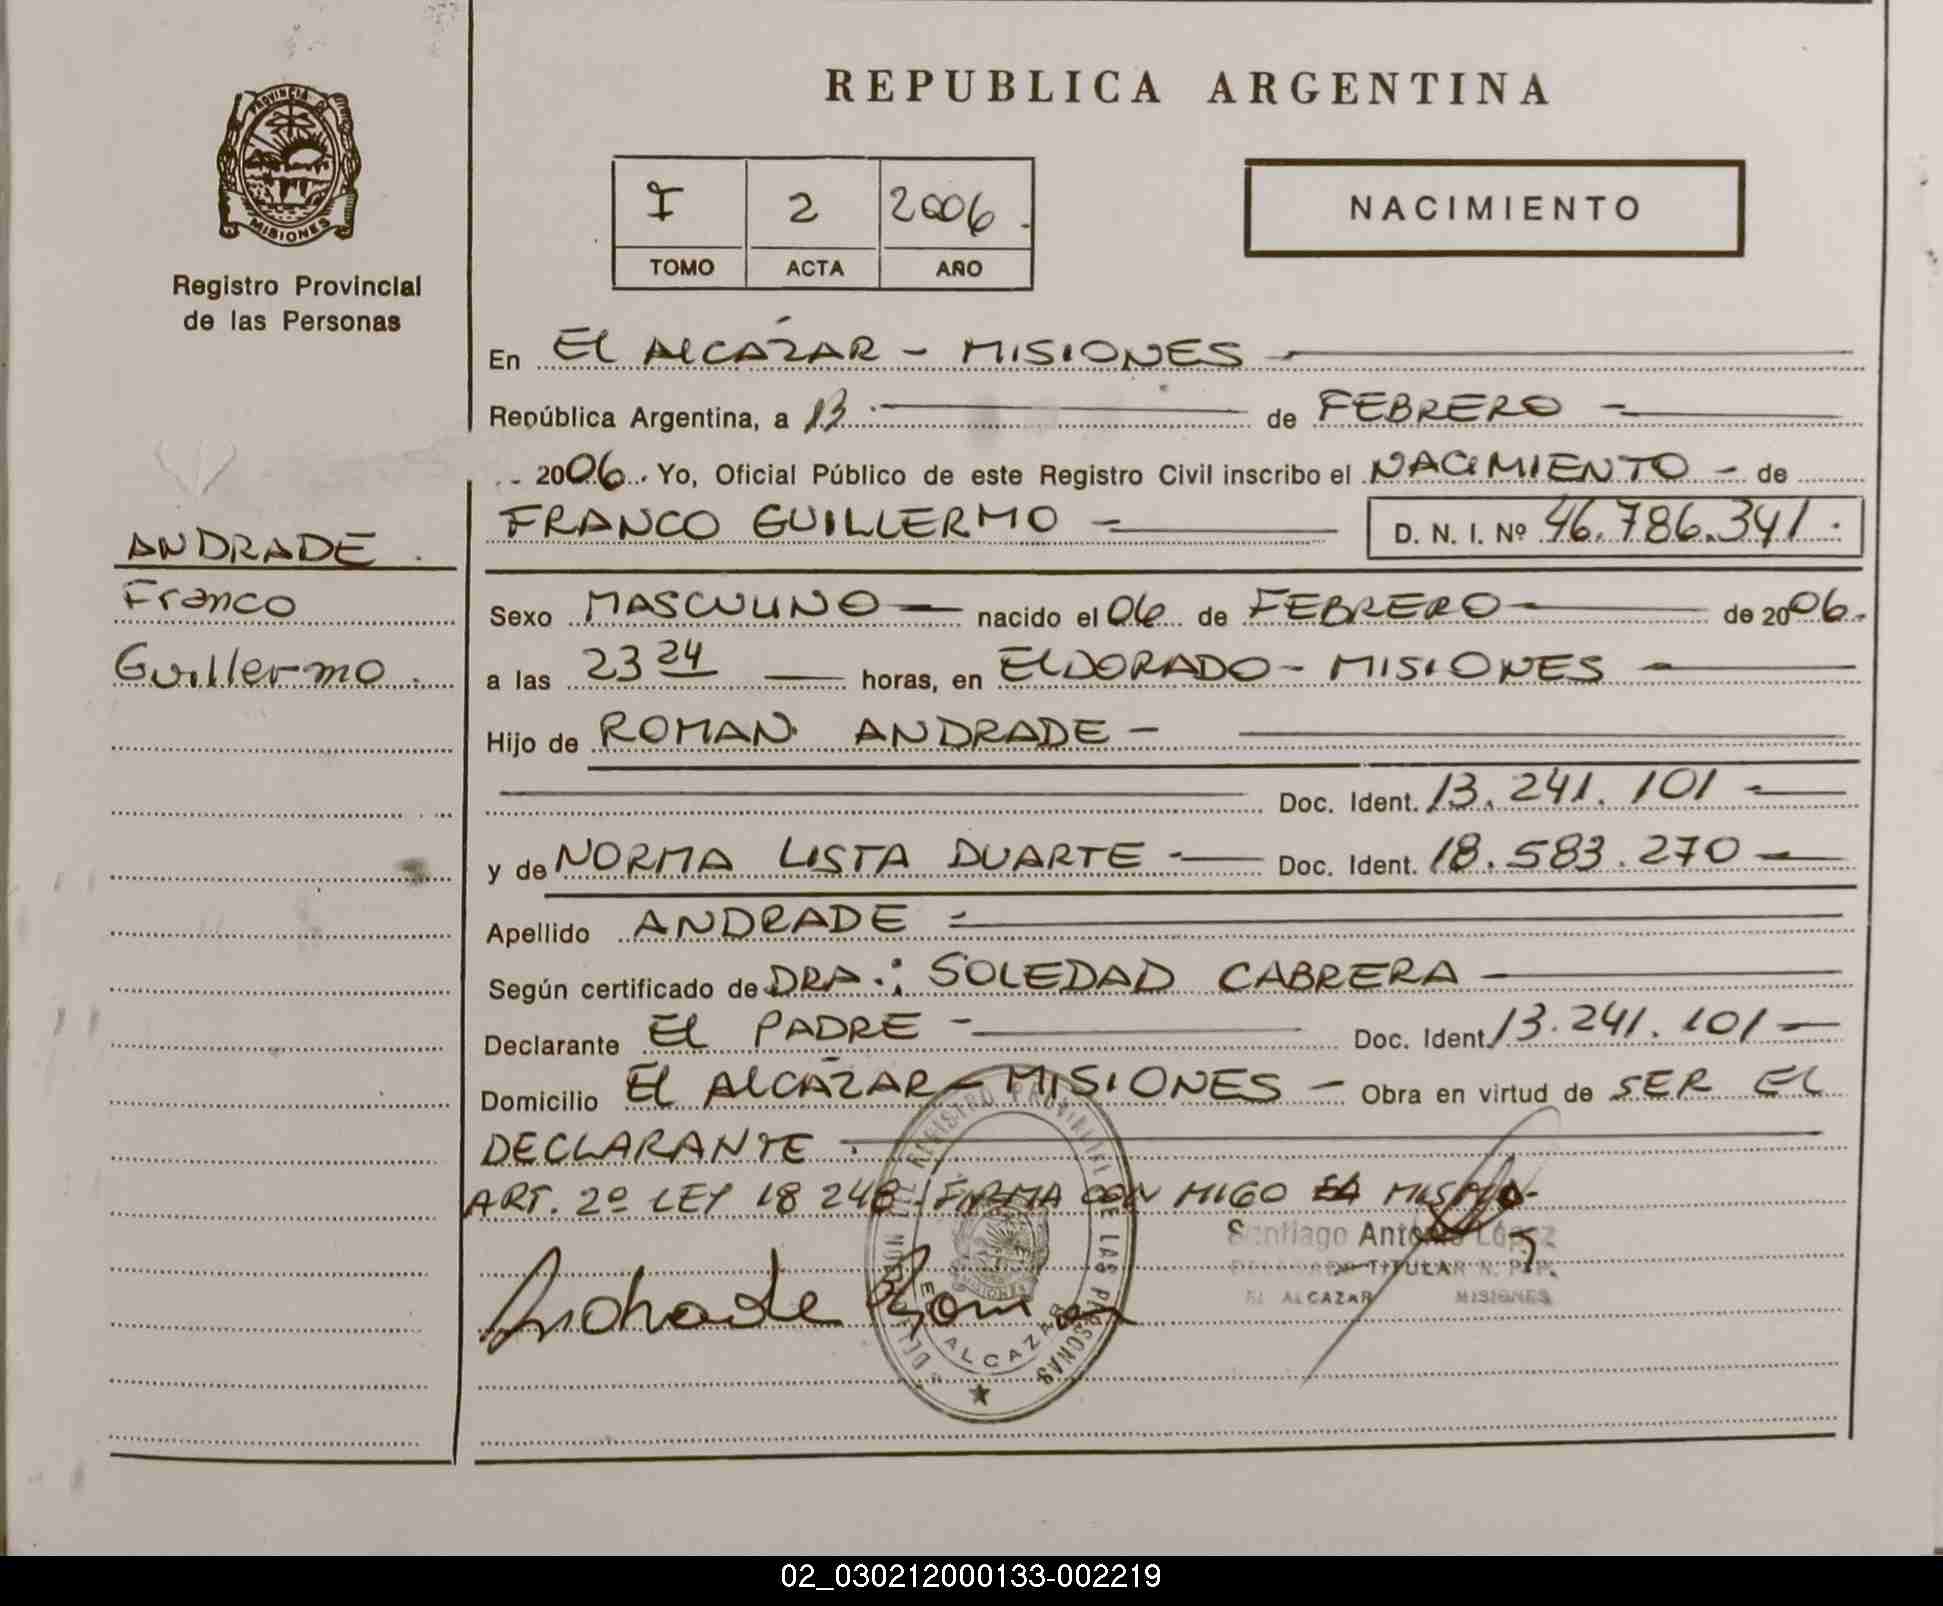 REPUBLICA ARGENTINA
PROVINCIA DE
MISIONES
Registro Provincial
de las Personas
I 2 2006.
TOMO ACTA AÑO
NACIMIENTO
En EL ALCÁZAR - MISIONES
República Argentina, a 13 de FEBRERO -
2006. Yo, Oficial Público de este Registro Civil inscribo el NACIMIENTO - de
FRANCO GUILLERMO - D. N. I. Nº 46.786.341.
ANDRADE.
Franco
Guillermo.
Sexo MASCULINO - nacido el 06 de FEBRERO - de 2006.
a las 23 24 horas, en ELDORADO - MISIONES -
Hijo de ROMAN ANDRADE -
Doc. Ident. 13.241.101 -
y de NORMA LISTA DUARTE - Doc. Ident. 18.583.270 -
Apellido ANDRADE -
Según certificado de DRA.: SOLEDAD CABRERA -
Declarante EL PADRE - Doc. Ident. 13.241.101 -
Domicilio EL ALCÁZAR - MISIONES - Obra en virtud de SER EL
DECLARANTE.
ART. 2º LEY 18 248 / FIRMA CON MIGO
Santiago Antonio López
TITULAR
EL ALCAZAR MISIONES
Andrade Roman
REGISTRO PROVINCIAL DE LAS PERSONAS
EL ALCAZAR
02_030212000133-002219